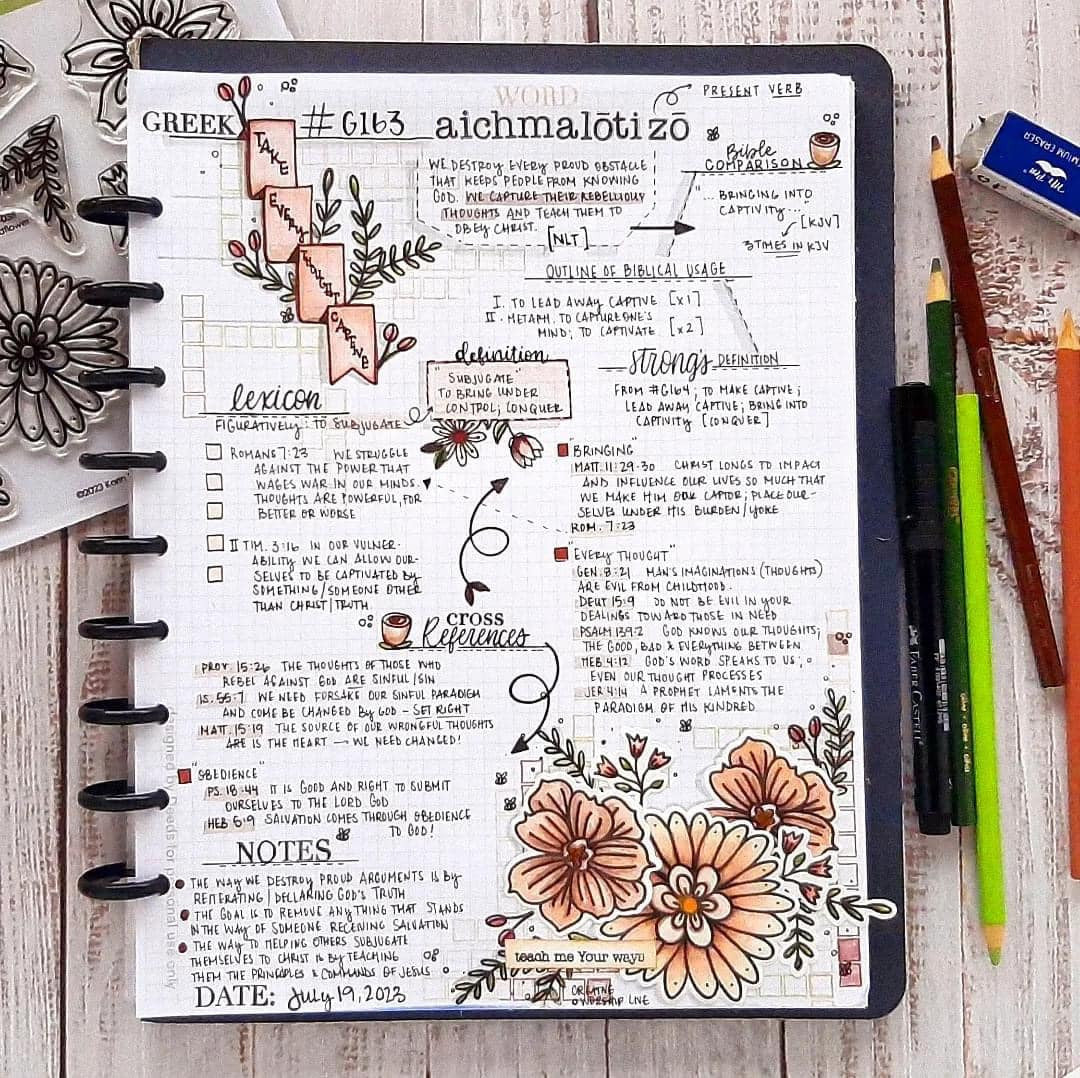 WORD
PRESENT VERB
GREEK #G163 aichmalōtizō
TAKE
EVERY
THOUGHT
CAPTIVE
WE DESTROY EVERY PROUD OBSTACLE
THAT KEEPS PEOPLE FROM KNOWING
GOD. WE CAPTURE THEIR REBELLIOUS
THOUGHTS AND TEACH THEM TO
OBEY CHRIST. [NLT]
Bible
COMPARISON
"... BRINGING INTO
CAPTIVITY...
[KJV]
3 TIMES IN KJV
OUTLINE OF BIBLICAL USAGE
I. TO LEAD AWAY CAPTIVE [x1]
II. METAPH. TO CAPTURE ONE'S
MIND; TO CAPTIVATE [x2]
definition
"SUBJUGATE"
TO BRING UNDER
CONTROL; CONQUER
strong's DEFINITION
FROM #G164; TO MAKE CAPTIVE;
LEAD AWAY CAPTIVE; BRING INTO
CAPTIVITY [CONQUER]
lexicon
FIGURATIVELY: TO SUBJUGATE
ROMANS 7:23 WE STRUGGLE
AGAINST THE POWER THAT
WAGES WAR IN OUR MINDS.
THOUGHTS ARE POWERFUL, FOR
BETTER OR WORSE
II TIM. 3:16 IN OUR VULNER-
ABILITY WE CAN ALLOW OUR-
SELVES TO BE CAPTIVATED BY
SOMETHING/SOMEONE OTHER
THAN CHRIST/TRUTH.
"BRINGING"
MATT. 11:29-30 CHRIST LONGS TO IMPACT
AND INFLUENCE OUR LIVES SO MUCH THAT
WE MAKE HIM OUR CAPTOR; PLACE OUR-
SELVES UNDER HIS BURDEN/YOKE
ROM. 7:23
"EVERY THOUGHT"
GEN. 8:21 MAN'S IMAGINATIONS (THOUGHTS)
ARE EVIL FROM CHILDHOOD.
DEUT 15:9 DO NOT BE EVIL IN YOUR
DEALINGS TOWARD THOSE IN NEED
PSALM 139:2 GOD KNOWS OUR THOUGHTS;
THE GOOD, BAD & EVERYTHING BETWEEN
HEB 4:12 GOD'S WORD SPEAKS TO US;
EVEN OUR THOUGHT PROCESSES
JER 4:14 A PROPHET LAMENTS THE
PARADIGM OF HIS KINDRED
CROSS
References
PROV. 15:26 THE THOUGHTS OF THOSE WHO
REBEL AGAINST GOD ARE SINFUL/SIN
IS. 55:7 WE NEED FORSAKE OUR SINFUL PARADIGM
AND COME BE CHANGED BY GOD - SET RIGHT
MATT. 15:19 THE SOURCE OF OUR WRONGFUL THOUGHTS
ARE IS THE HEART → WE NEED CHANGED!
"OBEDIENCE"
PS. 18:44 IT IS GOOD AND RIGHT TO SUBMIT
OURSELVES TO THE LORD GOD
HEB 5:9 SALVATION COMES THROUGH OBEDIENCE
TO GOD!
NOTES
THE WAY WE DESTROY PROUD ARGUMENTS IS BY
REITERATING/DECLARING GOD'S TRUTH
THE GOAL IS TO REMOVE ANYTHING THAT STANDS
IN THE WAY OF SOMEONE RECEIVING SALVATION
THE WAY TO HELPING OTHERS SUBJUGATE
THEMSELVES TO CHRIST IS BY TEACHING
THEM THE PRINCIPLES & COMMANDS OF JESUS
DATE: July 19, 2023
teach me Your ways
WORSHIP LIVE
FABER CASTELL
©2023